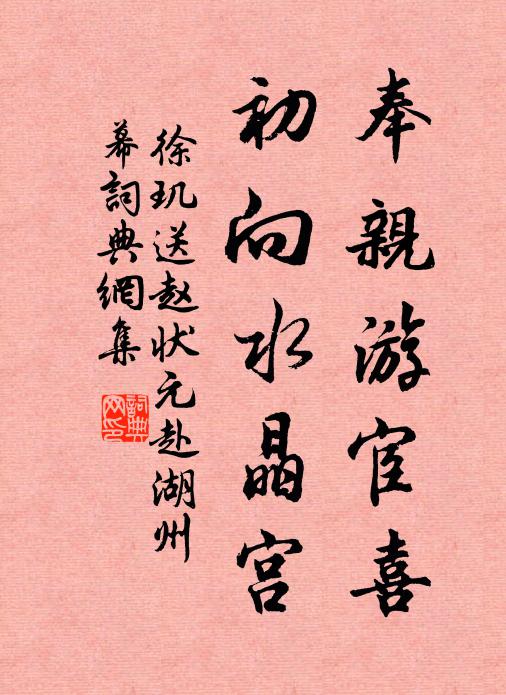 奉親游宦喜
初向水晶宫
徐玑送赵状元赴湖州
幕詞典網集
詞典网印